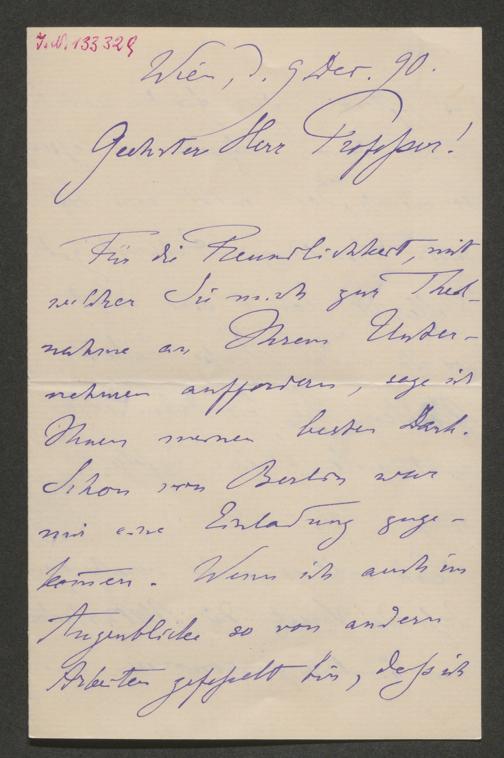 J.N. 133329
Wien, d. 9 Dec. 90.
Geehrter Herr Professor!
Für die Freundlichkeit, mit
welcher Sie mich zur Theil-
nahme an Ihrem Unter-
nehmen auffordern, sage ich
Ihnen meinen besten Dank.
Schon von Berlin war
mir eine Einladung zuge-
kom̄en. Wenn ich auch im
Augenblicke so von andern
Arbeiten gefesselt bin, daß ich